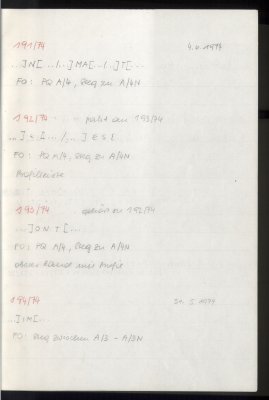 191/74 4.6.1974
...]N[.../...]MA[.../...]T[...
FO: PQ A/4, Steg zu A/4N
192/74 paßt an 193/74
...]S[.../...]ES[
FO: PQ A/4, Steg zu A/4N
Profilleiste
193/74 gehört zu 192/74
...]ONT[...
FO: PQ A/4, Steg zu A/4N
oberer Rand mit Profil
194/74 31.5.1974
...]IM[...
FO: Steg zwischen A/3 - A/3N